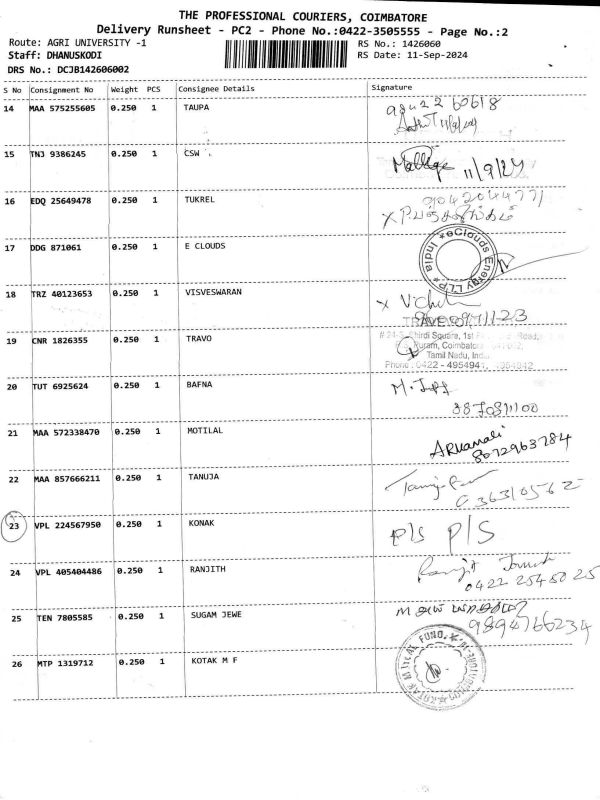 THE PROFESSIONAL COURIERS, COIMBATORE
Delivery Runsheet - PC2 - Phone No.:0422-3505555 - Page No.:2
Route: AGRI UNIVERSITY -1 RS No.: 1426060
Staff: DHANUSKODI RS Date: 11-Sep-2024
DRS No.: DCJB142606002
S No Consignment No Weight PCS Consignee Details Signature
14 MAA 575255605 0.250 1 TAUPA 98422 60618
11/9/24
15 TNJ 9386245 0.250 1 CSW 11/9/24
16 EDQ 25649478 0.250 1 TUKREL
17 DDG 871061 0.250 1 E CLOUDS eClouds Energy LLP * India *
18 TRZ 40123653 0.250 1 VISVESWARAN
19 CNR 1826355 0.250 1 TRAVO Shirdi Square, 1st Road,
Puram, Coimbatore
Tamil Nadu, India
Phone: 0422 - 4954941,
20 TUT 6925624 0.250 1 BAFNA
21 MAA 572338470 0.250 1 MOTILAL
8072963784
22 MAA 857666211 0.250 1 TANUJA
23 VPL 224567950 0.250 1 KONAK P/S P/S
24 VPL 405404486 0.250 1 RANJITH Ranjit
0422 2545025
25 TEN 7805585 0.250 1 SUGAM JEWE
9894766234
26 MTP 1319712 0.250 1 KOTAK M F KOTAK MUTUAL FUND